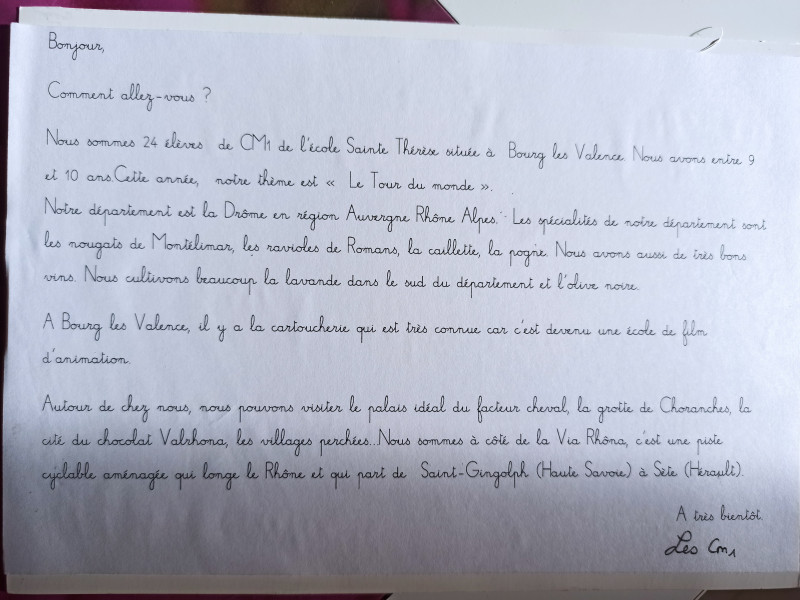 Bonjour,
Comment allez-vous ?
Nous sommes 24 élèves de CM1 de l'école Sainte Thérèse située à Bourg les Valence. Nous avons entre 9
et 10 ans.Cette année, notre thème est « Le Tour du monde ».
Notre département est la Drôme en région Auvergne Rhône Alpes. Les spécialités de notre département sont
les nougats de Montélimar, les ravioles de Romans, la caillette, la pogne. Nous avons aussi de très bons
vins. Nous cultivons beaucoup la lavande dans le sud du département et l'olive noire.
A Bourg les Valence, il y a la cartoucherie qui est très connue car c'est devenu une école de film
d'animation.
Autour de chez nous, nous pouvons visiter le palais idéal du facteur cheval, la grotte de Choranches, la
cité du chocolat Valrhona, les villages perchées...Nous sommes à côté de la Via Rhôna, c'est une piste
cyclable aménagée qui longe le Rhône et qui part de Saint-Gingolph (Haute Savoie) à Sète (Hérault).
A très bientôt.
Les Cm1